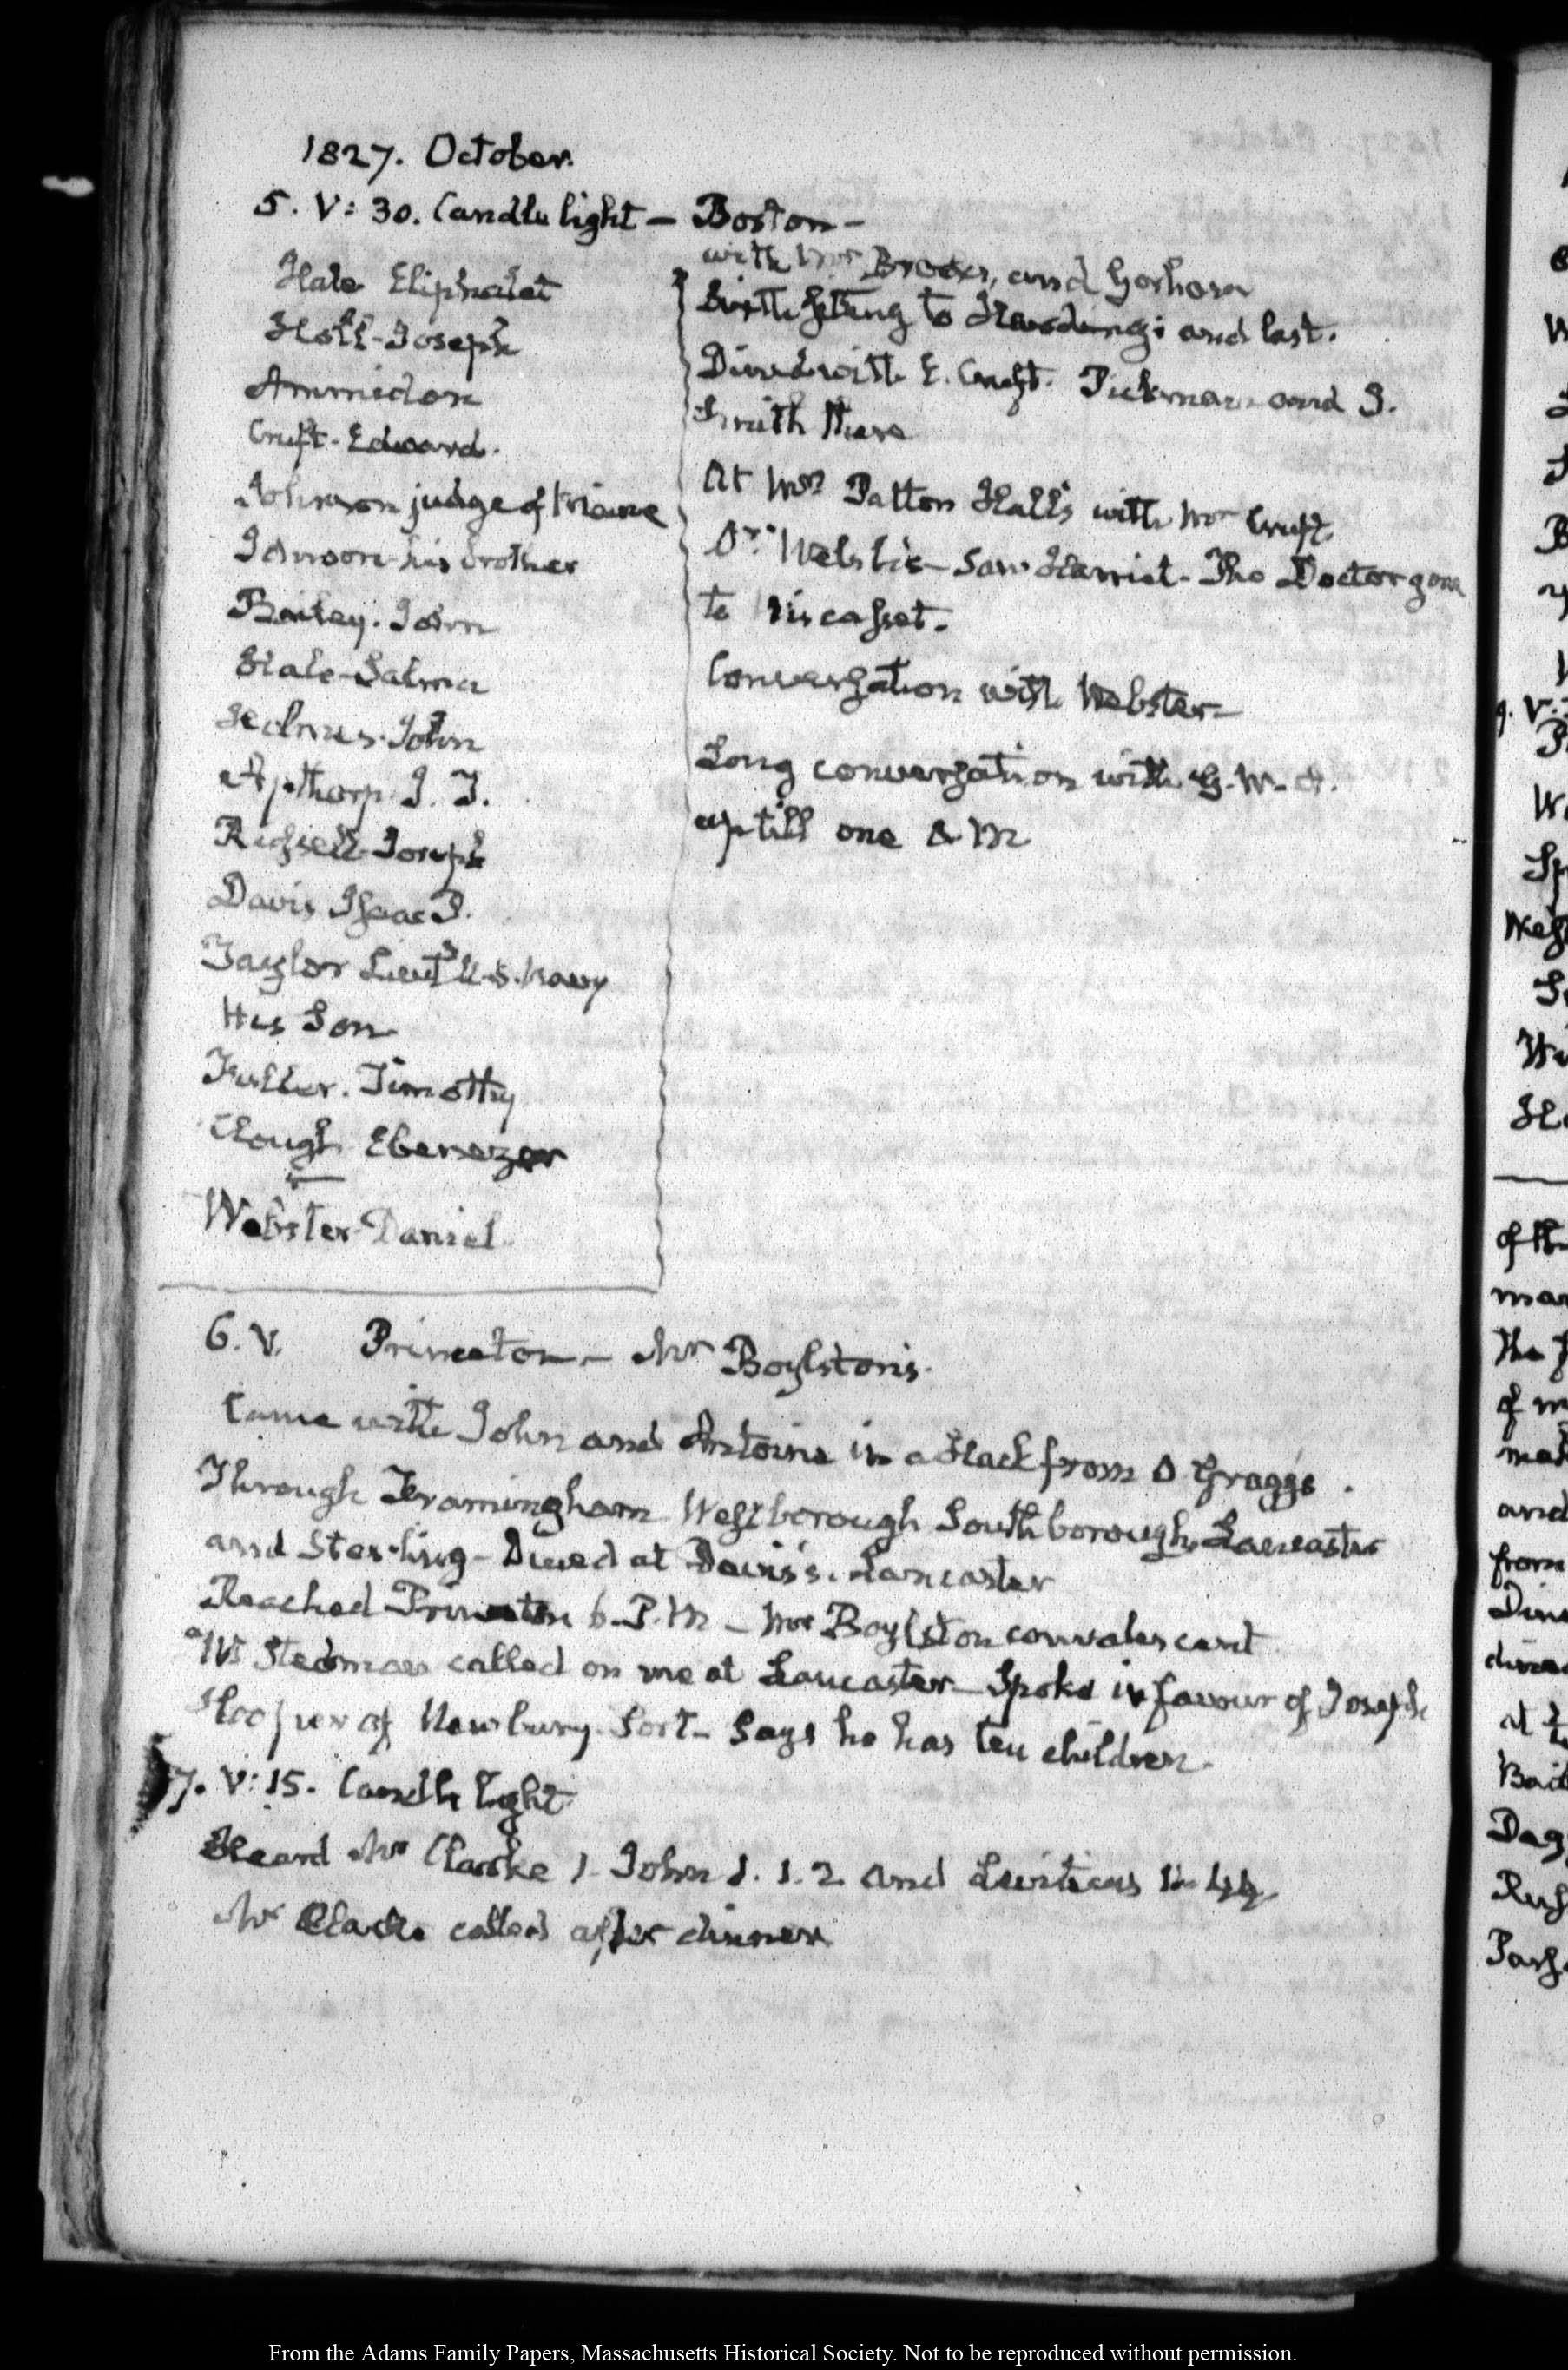 1827. October.
5. V: 30. Candle light — Boston —
Hale Eliphalet
Hall - Joseph
Ammidon
Cruft - Edward.
Johnson judge of Maine
Johnson his brother
Bailey. John
Hale - Salma
Holmes. John
Apthorp J. T.
Russell Joseph
Davis Isaac P.
Taylor Lieutt. U.S. Navy
His Son
Fuller. Timothy
Clough Ebenezer
Webster Daniel
with Mr Brooks, and Gorham
Sixth sitting to Harding; and last.
Dined with E. Cruft. Pickman and J.
Smith there
At Mrs Patton Hall's with Mr Cruft
Dr. Welsh's — Saw Harriet. The Doctor gone
to Wiscasset.
Conversation with Webster —
Long conversation with G. W. A.
up till one A M
6. V. Princeton — Mr Boylston's.
Came with John and Antoine in a Hack from D Graggs.
Through Framingham Westborough Southborough, Lancaster
and Sterling — Dined at Davis's. Lancaster
Reached Princeton 6. P. M — Mr Boylston convalescent
W Stedman called on me at Lancaster — Spoke in favour of Joseph
Hooper of Newbury-Port — Says he has ten children.
7. V: 15. Candle light
Heard Mr Clarke 1. John 1. 1. 2 and Leviticus
Mr Clarke called after dinner
From the Adams Family Papers, Massachusetts Historical Society. Not to be reproduced without permission.